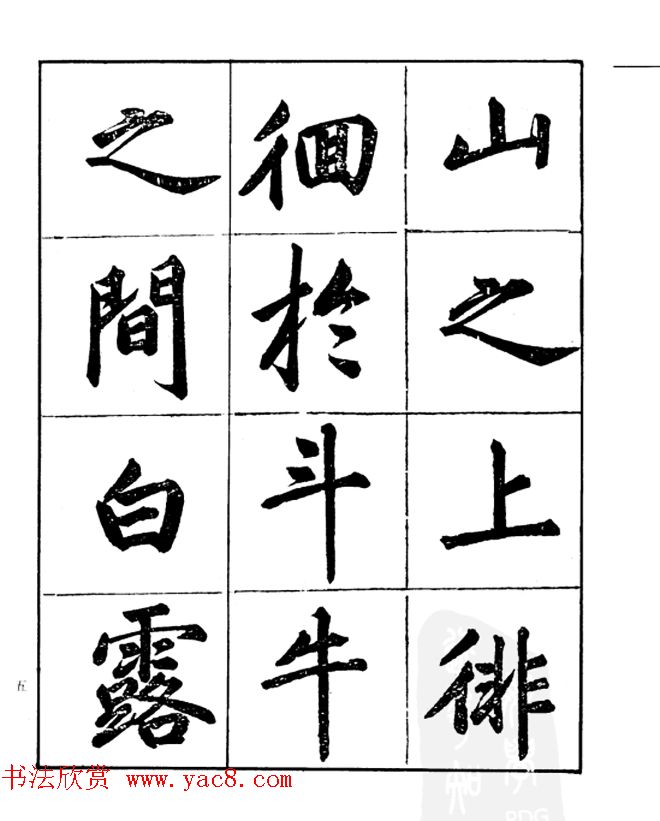 山之上徘
徊於斗牛
之間白露
五
书法欣赏 www.yac8.com
PDG